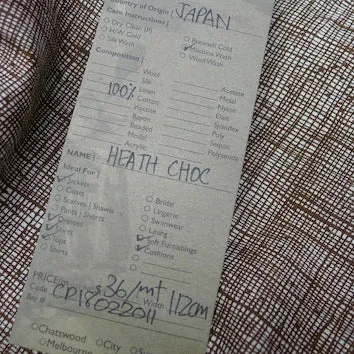 Country of Origin [ JAPAN
Care Instructions ]
Dry Clean (P)
H/W Cold
Silk Wash
Prewash Cold
Machine Wash
Wool Wash
Composition ]
Wool
Silk
100% Linen
Cotton
Viscose
Rayon
Beaded
Modal
Acrylic
Acetate
Metal
Nylon
Elast
Spandex
Poly
Sequin
Polyamide
NAME [ HEATH CHOC
Ideal For ]
Jackets
Coats
Scarves | Shawls
Pants | Shorts
Dresses
Skirts
Tops
Shirts
Bridal
Lingerie
Swimwear
Lining
Soft Furnishings
Cushions
PRICE $36/mt Width 112cm
Code CP18022011
Bay #
Chatswood
City
Melbourne